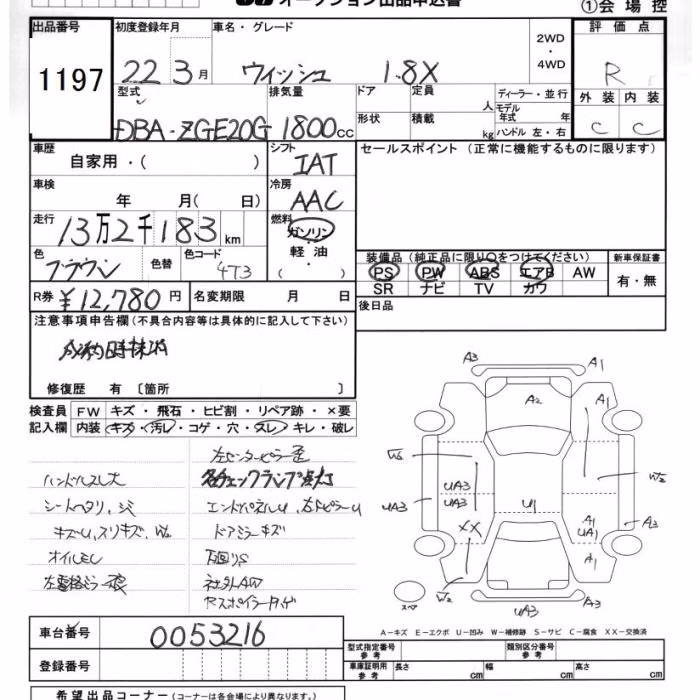 オークション出品申込書
①会場控
出品番号 初度登録年月 車名・グレード 2WD・4WD 評価点
1197 22 3月 ウィッシュ 1.8X R
型式 排気量 ドア 定員 人 ディーラー・並行 外装 内装
DBA-ZGE20G 1800cc 形状 積載 kg モデル年式 年 ハンドル 左・右 C C
車歴 自家用・( ) シフト IAT セールスポイント(正常に機能するものに限ります)
車検 年 月( 日) 冷房 AAC
走行 13万2千183km 燃料 ガソリン 軽油 ( )
色 ブラウン 色替 色コード 4T3
装備品(純正品に限り○をつけてください) 新車保証書
PS PW ABS エアB AW 有・無
SR ナビ TV カワ
R券 ¥12,780円 名変期限 月 日 後日品
注意事項申告欄(不具合内容等は具体的に記入して下さい)
修復歴 有 〔箇所 〕
検査員 FW キズ・飛石・ヒビ割・リペア跡・×要
記入欄 内装 キズ・汚レ・コゲ・穴・スレ・キレ・破レ
左センターピラー歪
ハンドルスレ大
各チェックランプ点灯
シートヘタリ、シミ エンドパネルU、右FピラーU
キズU、スリキズ、W2 ドアミラーキズ
オイルモレ 下回りS
社外AW
Rスポイラー
A3 A1
A2 A1
W3 W2
UA3 UA3 UA3 U1 A3
XX A1 UA1
A1
W2 UA3
スペア
A-キズ E-エクボ U-凹み W-補修跡 S-サビ C-腐食 XX-交換済
車台番号 0053216
型式指定番号参考 類別区分番号参考
登録番号 車庫証明用参考 長さ cm 幅 cm 高さ cm
希望出品コーナー(コーナーは各会場により異なります。)